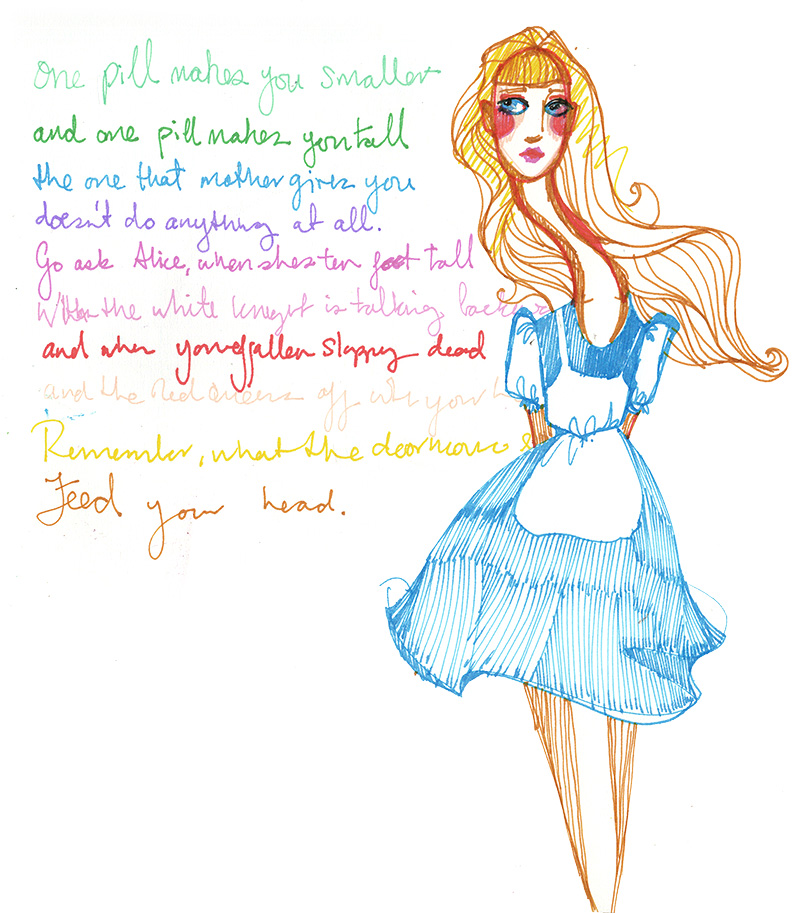 One pill makes you smaller
and one pill makes you tall
the one that mother gives you
doesn't do anything at all.
Go ask Alice, when shes ten feet tall
When the white knight is talking backwa
and when you've fallen sloppy dead
and the Red Queens off your h
Remember, what the doormouse s
Feed your head.